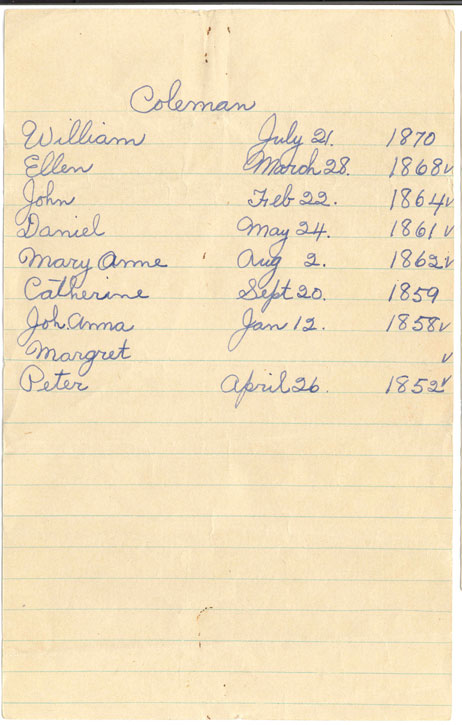 Coleman
William July 21. 1870
Ellen March 28. 1868 v
John Feb 22. 1864 v
Daniel May 24. 1861 v
Mary Anne Aug 2. 1862 v
Catherine Sept 20. 1859
Joh.anna Jan 12. 1858 v
Margret v
Peter April 26. 1852 v